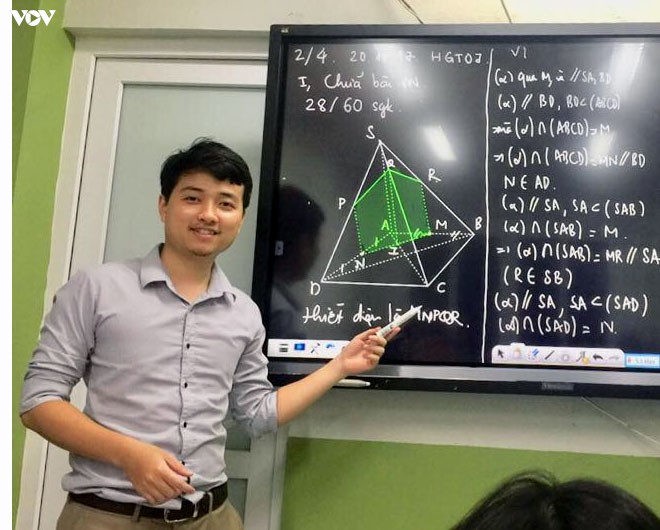 VOV
2/4. HGTOJ.
I, Chữa bài
28/60 sgk.
S
Q
R
P
A
M
B
N
I
D
C
thiết diện là MNPQR.
VI
(α) qua M, và // SA, BD
(α) // BD, BD ⊂ (ABCD)
(α) ∩ (ABCD) = M.
⇒ (α) ∩ (ABCD) = MN // BD
N ∈ AD.
(α) // SA, SA ⊂ (SAB)
(α) ∩ (SAB) = M.
⇒ (α) ∩ (SAB) = MR // SA
(R ∈ SB)
(α) // SA, SA ⊂ (SAD)
(α) ∩ (SAD) = N.